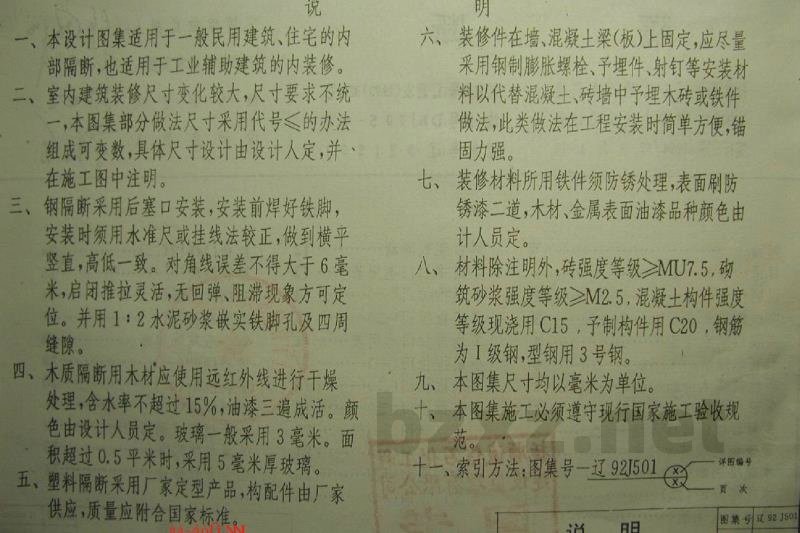 说 明
一、本设计图集适用于一般民用建筑、住宅的内
部隔断,也适用于工业辅助建筑的内装修。
二、室内建筑装修尺寸变化较大,尺寸要求不统
一,本图集部分做法尺寸采用代号≤的办法
组成可变数,具体尺寸设计由设计人定,并
在施工图中注明。
三、钢隔断采用后塞口安装,安装前焊好铁脚,
安装时须用水准尺或挂线法较正,做到横平
竖直,高低一致。对角线误差不得大于6毫
米,启闭推拉灵活,无回弹、阻滞现象方可定
位。并用1:2水泥砂浆嵌实铁脚孔及四周
缝隙。
四、木质隔断用木材应使用远红外线进行干燥
处理,含水率不超过15%,油漆三遍成活。颜
色由设计人员定。玻璃一般采用3毫米。面
积超过0.5平米时,采用5毫米厚玻璃。
五、塑料隔断采用厂家定型产品,构配件由厂家
供应,质量应附合国家标准。
六、装修件在墙、混凝土梁(板)上固定,应尽量
采用钢制膨胀螺栓、予埋件、射钉等安装材
料以代替混凝土、砖墙中予埋木砖或铁件
做法,此类做法在工程安装时简单方便,锚
固力强。
七、装修材料所用铁件须防锈处理,表面刷防
锈漆二道,木材、金属表面油漆品种颜色由
计人员定。
八、材料除注明外,砖强度等级≥MU7.5,砌
筑砂浆强度等级≥M2.5,混凝土构件强度
等级现浇用C15,予制构件用C20,钢筋
为I级钢,型钢用3号钢。
九、本图集尺寸均以毫米为单位。
十、本图集施工必须遵守现行国家施工验收规
范。
十一、索引方法:图集号—辽92J501 X X 详图编号
页 次
说 明
图集号 辽92J501
bzxz.net